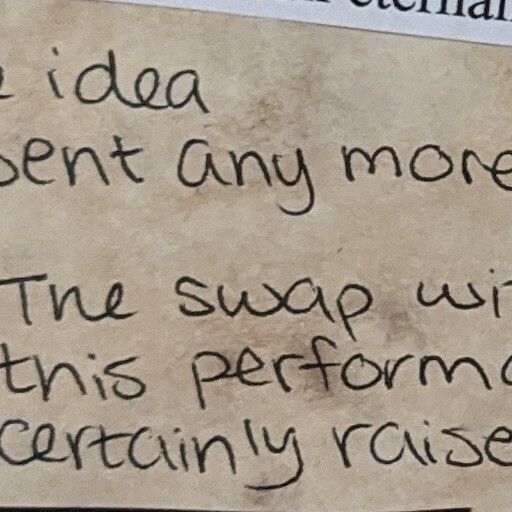 eternal
idea
sent any more
The swap wi
this performa
certainly raise